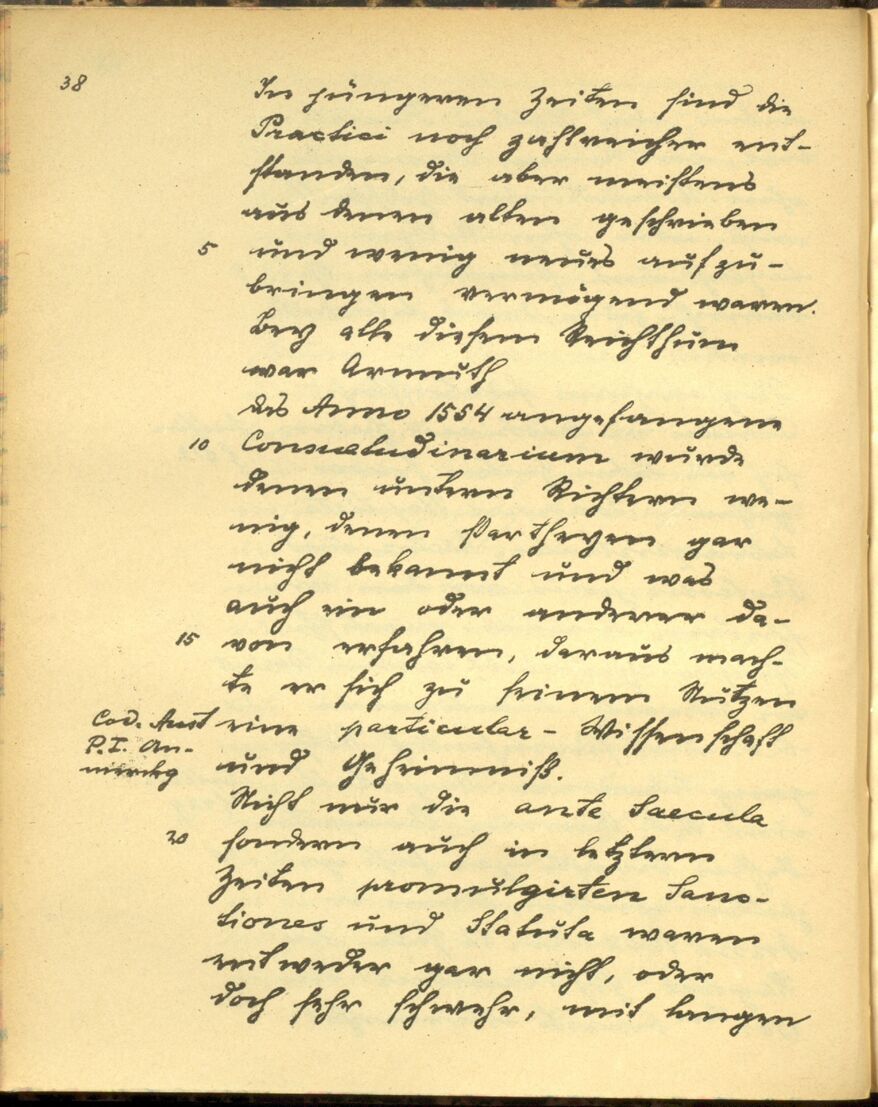 38
In jüngeren Zeiten sind die
Practici noch zahlreicher ent-
standen, die aber meistens
aus denen alten geschrieben
5 und wenig neues aufzu-
bringen vermögend waren.
Bey alle diesem Reichthum
war Armuth
das Anno 1554 angefangene
10 Consuetudinarium wurde
denen untern Richtern we-
nig, denen Partheyen gar
nicht bekannt und was
auch ein oder anderer da-
15 von erfahren, daraus mach-
te er sich zu seinem Nutzen
Cod. Aust
P.I. An-
merckg
eine particular-Wissenschaft
und Geheimniß.
Nicht nur die ante Saecula
20 sondern auch in letztern
Zeiten promulgirten Sanc-
tiones und Statuta waren
entweder gar nicht, oder
doch sehr schwehr, mit langen